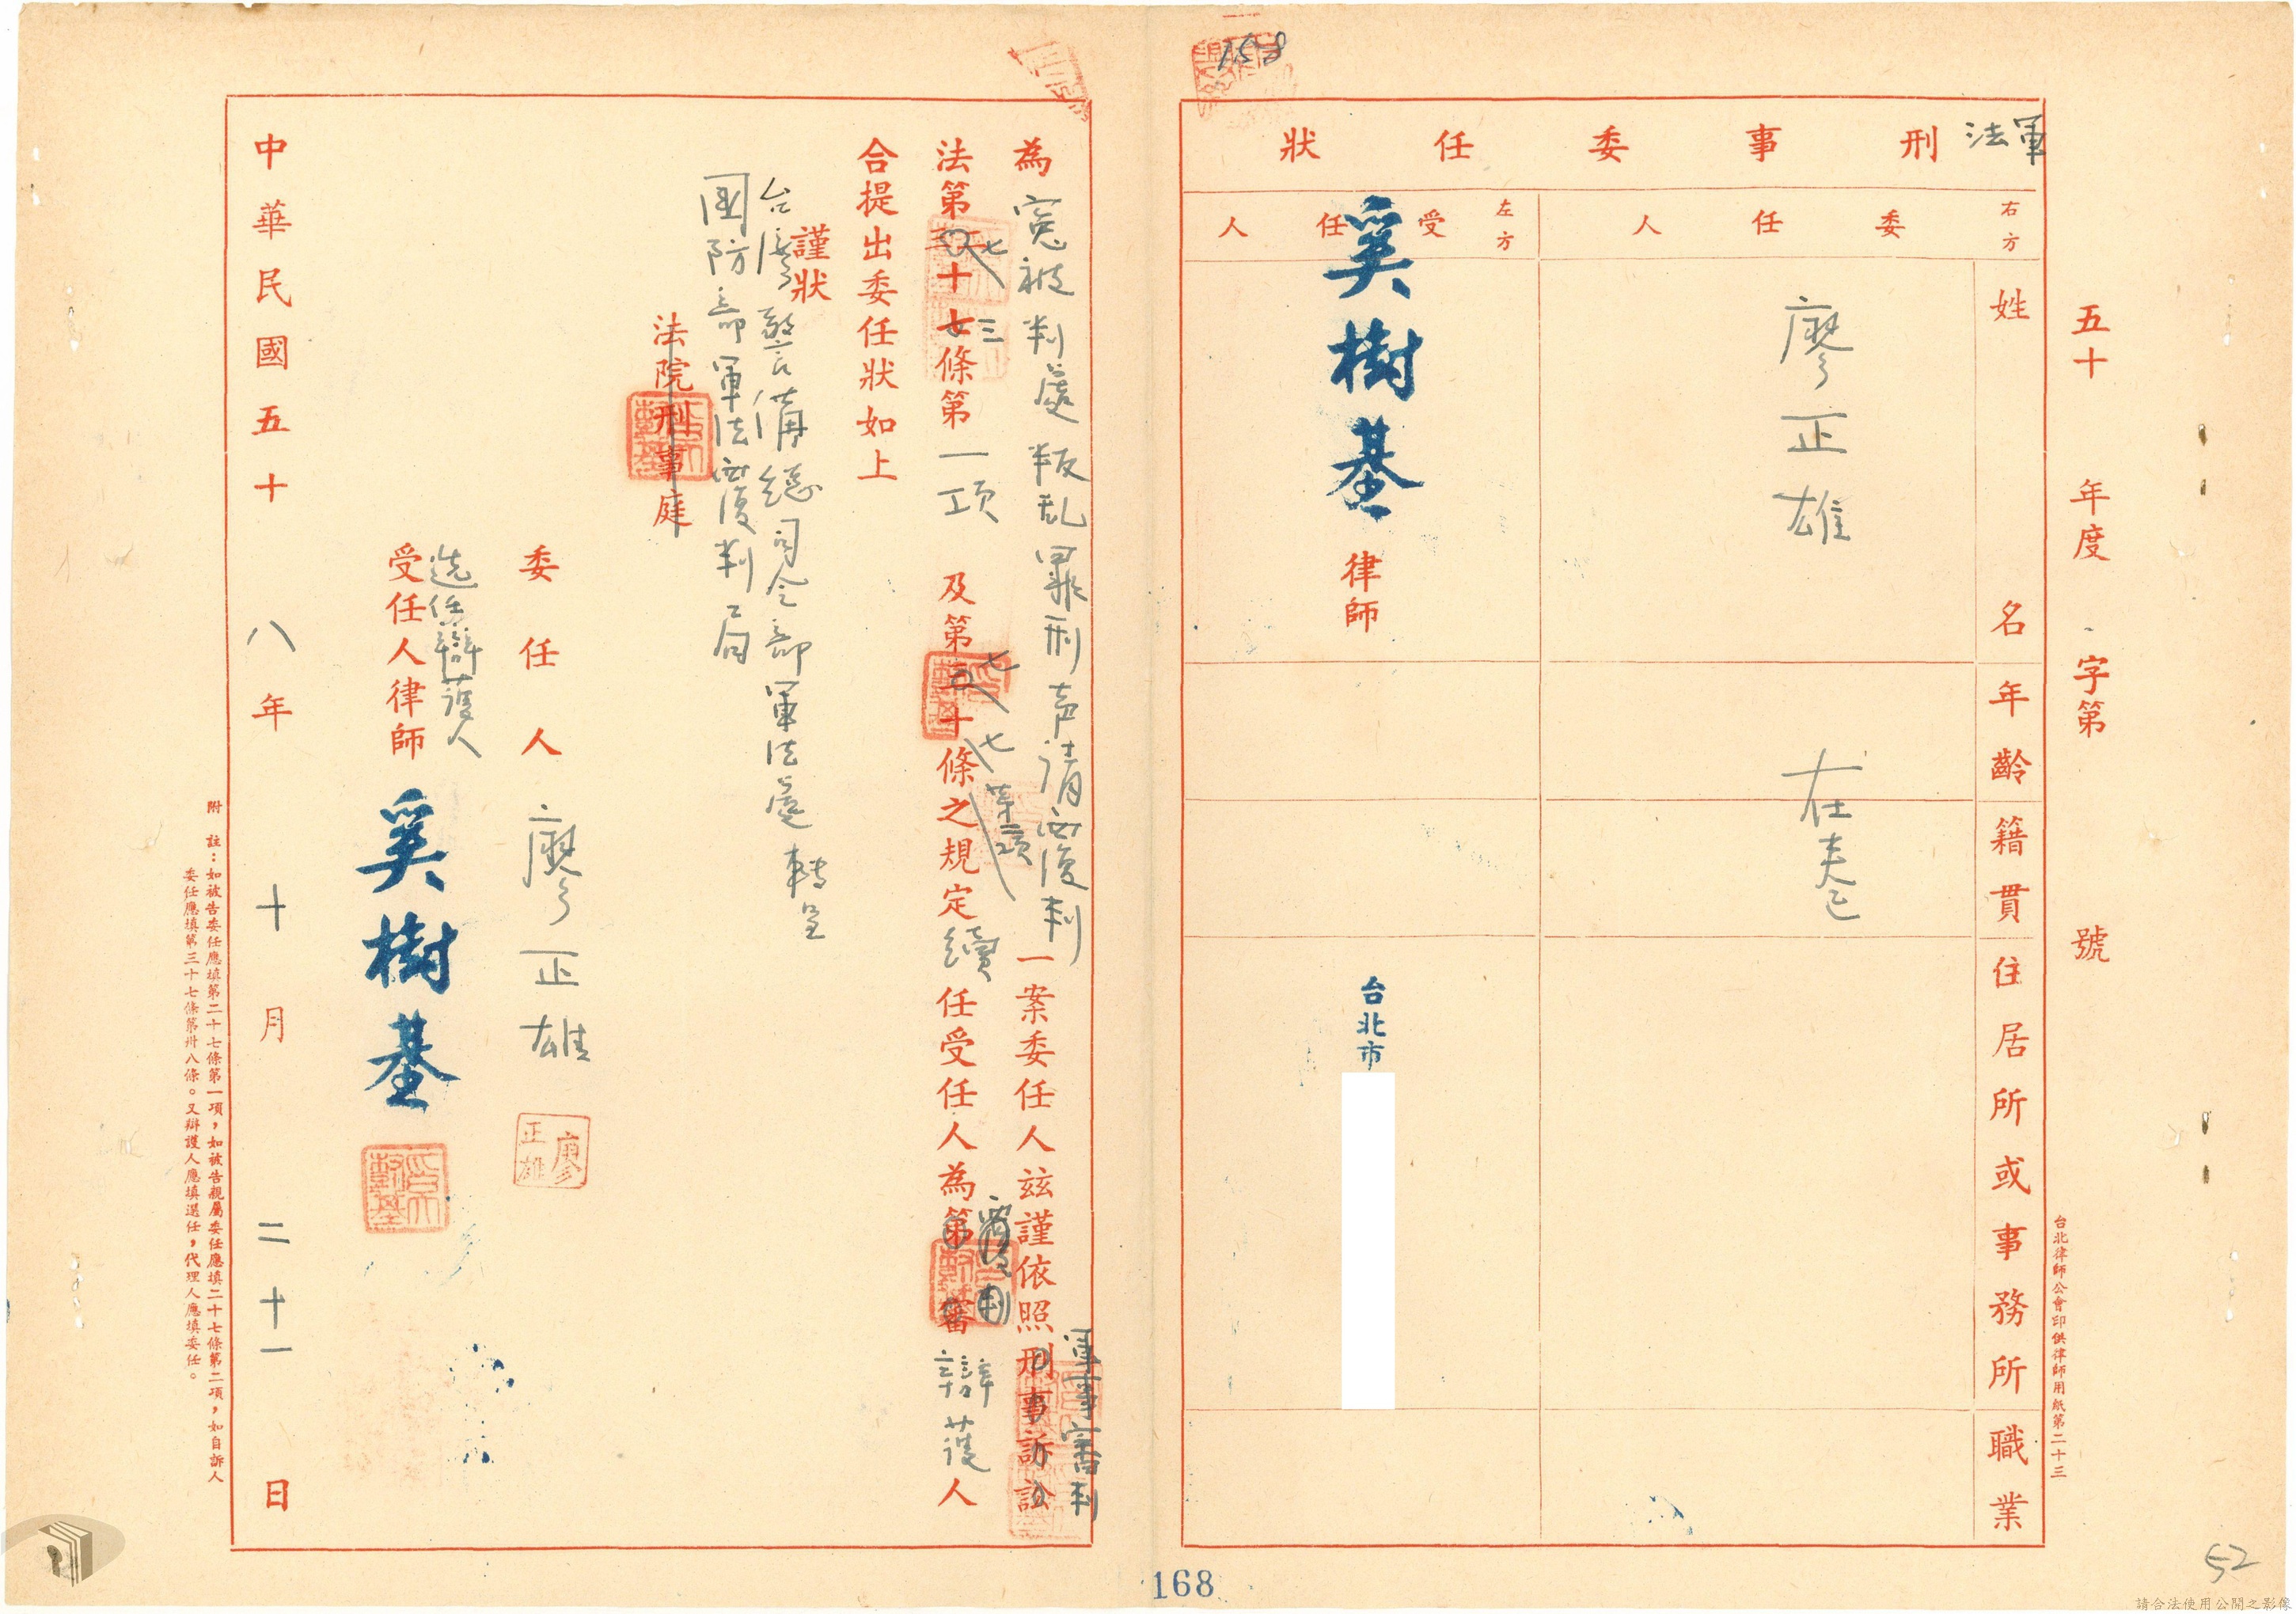 158
五十 年度 字第 號
台北律師公會印供律師用紙第二十三
軍法 刑事委任狀
右方 委任人
左方 受任人
姓名 年齡 籍貫 住居所或事務所 職業
廖正雄
在卷
奚樹基 律師
台北市
為 冤被判處叛乱罪刑声請覆判 一案委任人茲謹依照刑事訴訟
軍事審判
法第 十七條第 一項 及第五十條之規定 續 任受任人為第 審 辯護 人
七三
七七等項
覆判
合提出委任狀如上
謹狀
台灣警備總司令部軍法處 轉呈
國防部軍法覆判局
法院刑事庭
委任人 廖正雄
廖正雄
選任辯護人
受任人律師 奚樹基
中華民國五十 八 年 十 月 二十一 日
附註：如被告委任應填第二十七條第一項，如被告親屬委任應填二十七條第二項，如自訴人
委任應填第三十七條第卅八條。又辯護人應填選任，代理人應填委任。
168
52
請合法使用公開之影像